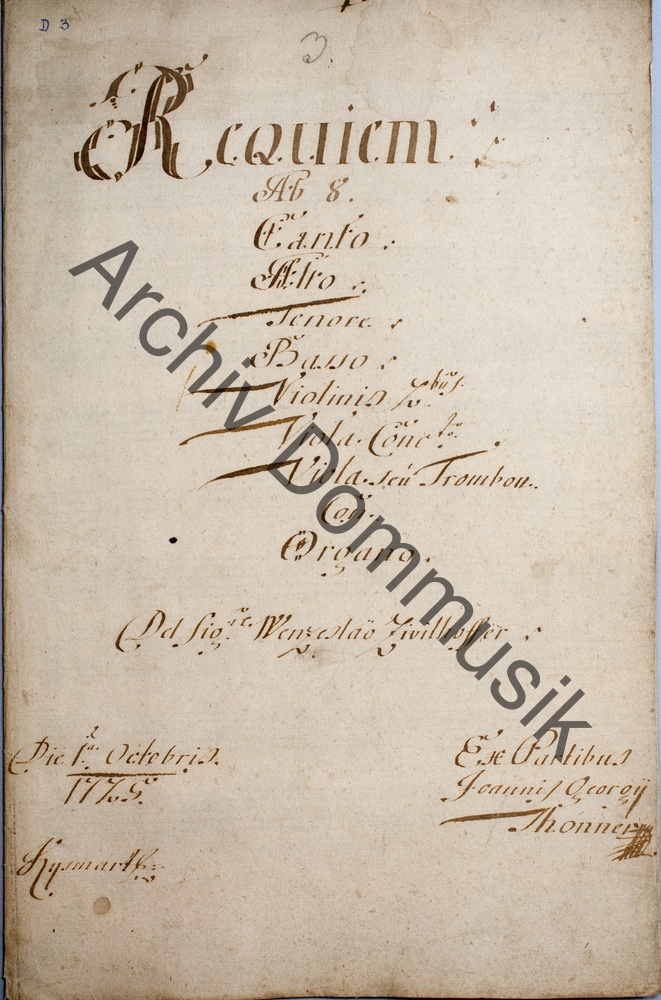 D 3
3.
Requiem.
Ab 8.
Canto :
Alto :
Tenore :
Basso :
Violinis 2bus.
Viola. Conc:to.
Viola. seu Trombon..
Con.
Organo.
Del Sig:re Wenzeslao Zivilhoffer :
Die 1ma. Octobris.
1775.
Ex Partibus
Joannis Georgÿ
Thonner
Archiv Dommusik